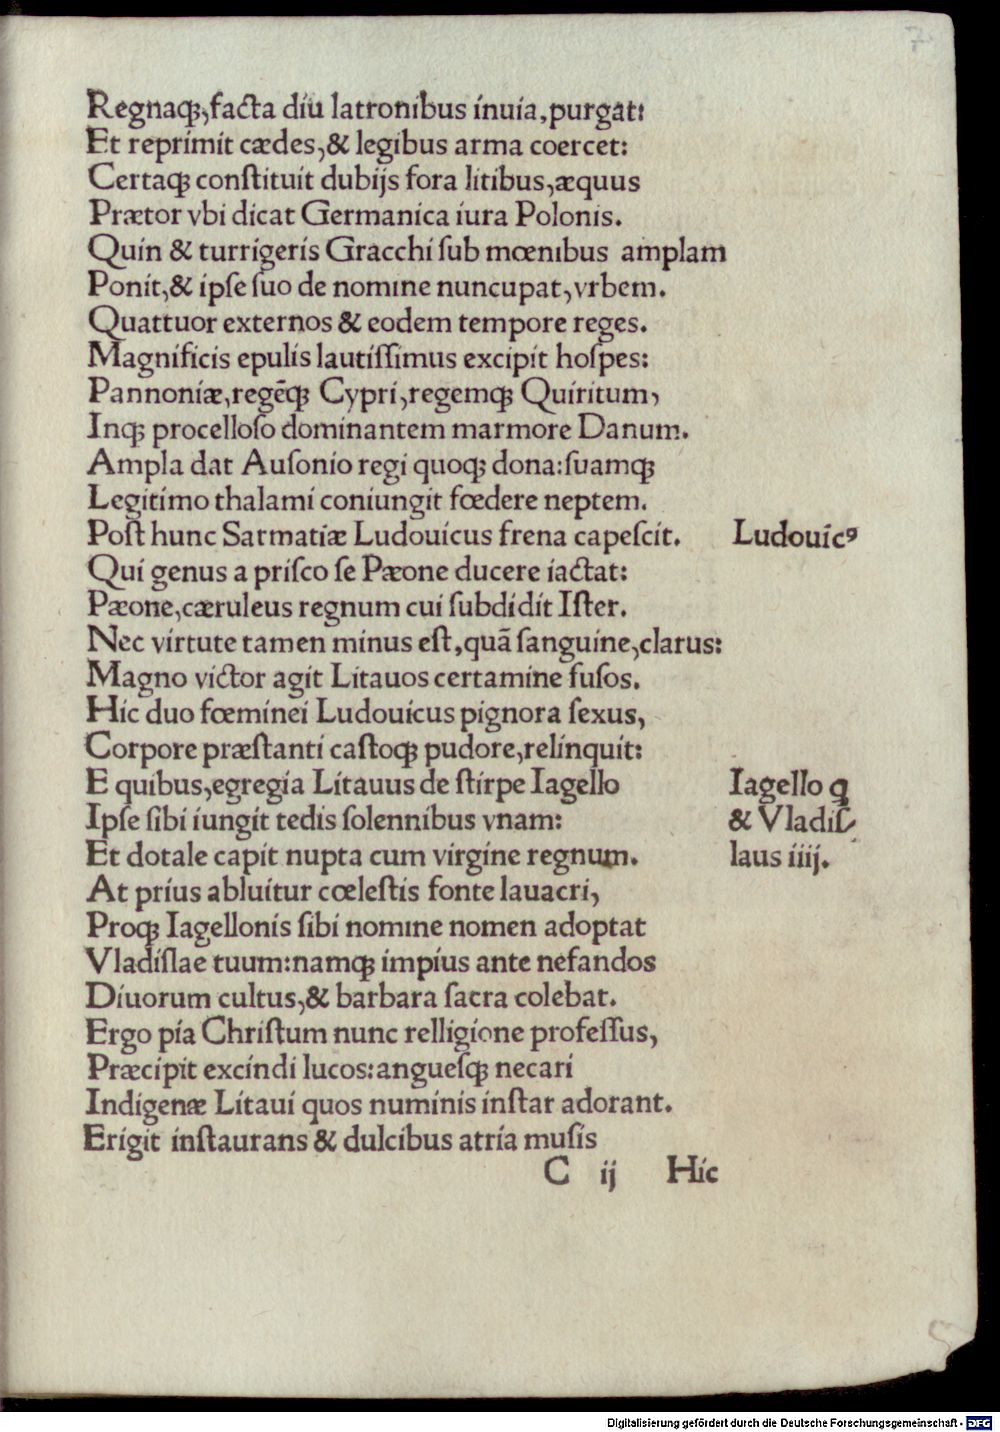 7
Regnaꝗ;,facta diu latronibus inuia,purgat:
Et reprimit cædes,& legibus arma coercet:
Certaꝗ; conſtituit dubijs fora litibus,æquus
Prætor vbi dicat Germanica iura Polonis.
Quin & turrigeris Gracchi ſub mœnibus amplam
Ponit,& ipſe ſuo de nomine nuncupat,vrbem.
Quattuor externos & eodem tempore reges.
Magnificis epulis lautiſſimus excipit hoſpes:
Pannoniæ,regēꝗ; Cypri,regemꝗ; Quiritum,
Inꝗ; procelloſo dominantem marmore Danum.
Ampla dat Auſonio regi quoꝗ; dona:ſuamꝗ;
Legitimo thalami coniungit fœdere neptem.
Poſt hunc Sarmatiæ Ludouicus frena capeſcit. Ludouicꝰ
Qui genus a priſco ſe Pæone ducere iactat:
Pæone,cæruleus regnum cui ſubdidit Iſter.
Nec virtute tamen minus eſt,quā ſanguine,clarus:
Magno victor agit Litauos certamine fuſos.
Hic duo fœminei Ludouicus pignora ſexus,
Corpore præſtanti caſtoꝗ; pudore,relinquit:
E quibus,egregia Litauus de ſtirpe Iagello Iagello q
Ipſe ſibi iungit tedis ſolennibus vnam: & Vladiſ
Et dotale capit nupta cum virgine regnum. laus iiij.
At prius abluitur cœleſtis fonte lauacri,
Proꝗ; Iagellonis ſibi nomine nomen adoptat
Vladiſlae tuum:namꝗ; impius ante nefandos
Diuorum cultus,& barbara ſacra colebat.
Ergo pia Chriſtum nunc relligione profeſſus,
Præcipit excindi lucos:angueſꝗ; necari
Indigenæ Litaui quos numinis inſtar adorant.
Erigit inſtaurans & dulcibus atria muſis
C ij Hic
Digitalisierung gefördert durch die Deutsche Forschungsgemeinschaft - DFG